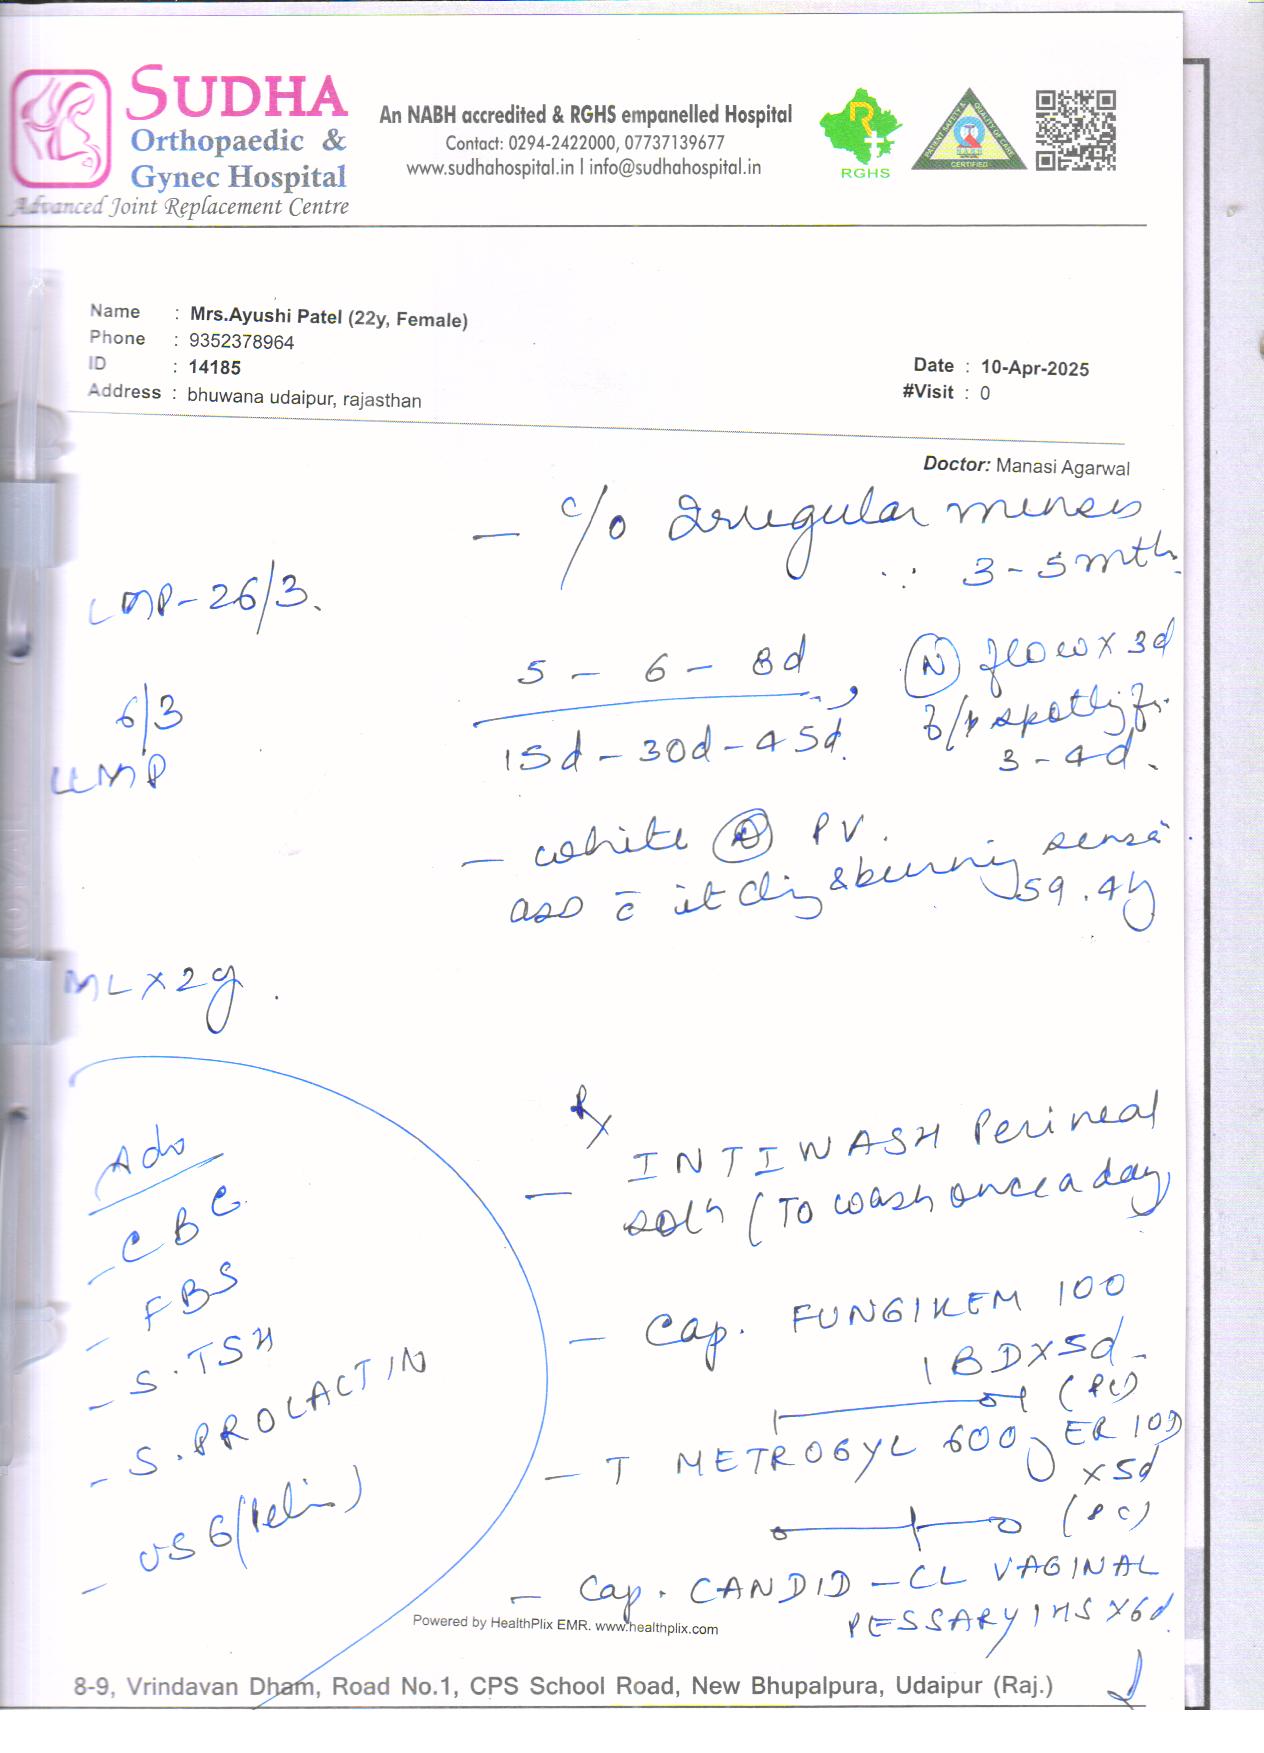 SUDHA
Orthopaedic &
Gynec Hospital
Advanced Joint Replacement Centre
An NABH accredited & RGHS empanelled Hospital
Contact: 0294-2422000, 07737139677
www.sudhahospital.in | info@sudhahospital.in
RGHS
PATIENT SAFETY & QUALITY OF CARE
CERTIFIED
Name : Mrs.Ayushi Patel (22y, Female)
Phone : 9352378964
ID : 14185
Address : bhuwana udaipur, rajasthan
Date : 10-Apr-2025
#Visit : 0
Doctor: Manasi Agarwal
- c/o Irregular menses
∵ 3-5 mth.
LMP-26/3.
5 - 6 - 8d
15d-30d-45d.
(N) flow x 3d
f/b spotting for
3-4d.
6/3
LLMP
- white (D) PV.
asso c̄ itching & burning sensa
59.4
MLx2y.
Adv
- CBC
- FBS
- S.TSH
- S.PROLACTIN
- USG (Pelvis)
Rx
- INTIWASH Perineal
soln (To wash once a day
- Cap. FUNGIKEM 100
1 BDX5d
(PC)
- T METROGYL 600 ER 1OD
x5d
(PC)
- Cap. CANDID-CL VAGINAL
PESSARY 1HS x6d
Powered by HealthPlix EMR. www.healthplix.com
8-9, Vrindavan Dham, Road No.1, CPS School Road, New Bhupalpura, Udaipur (Raj.)